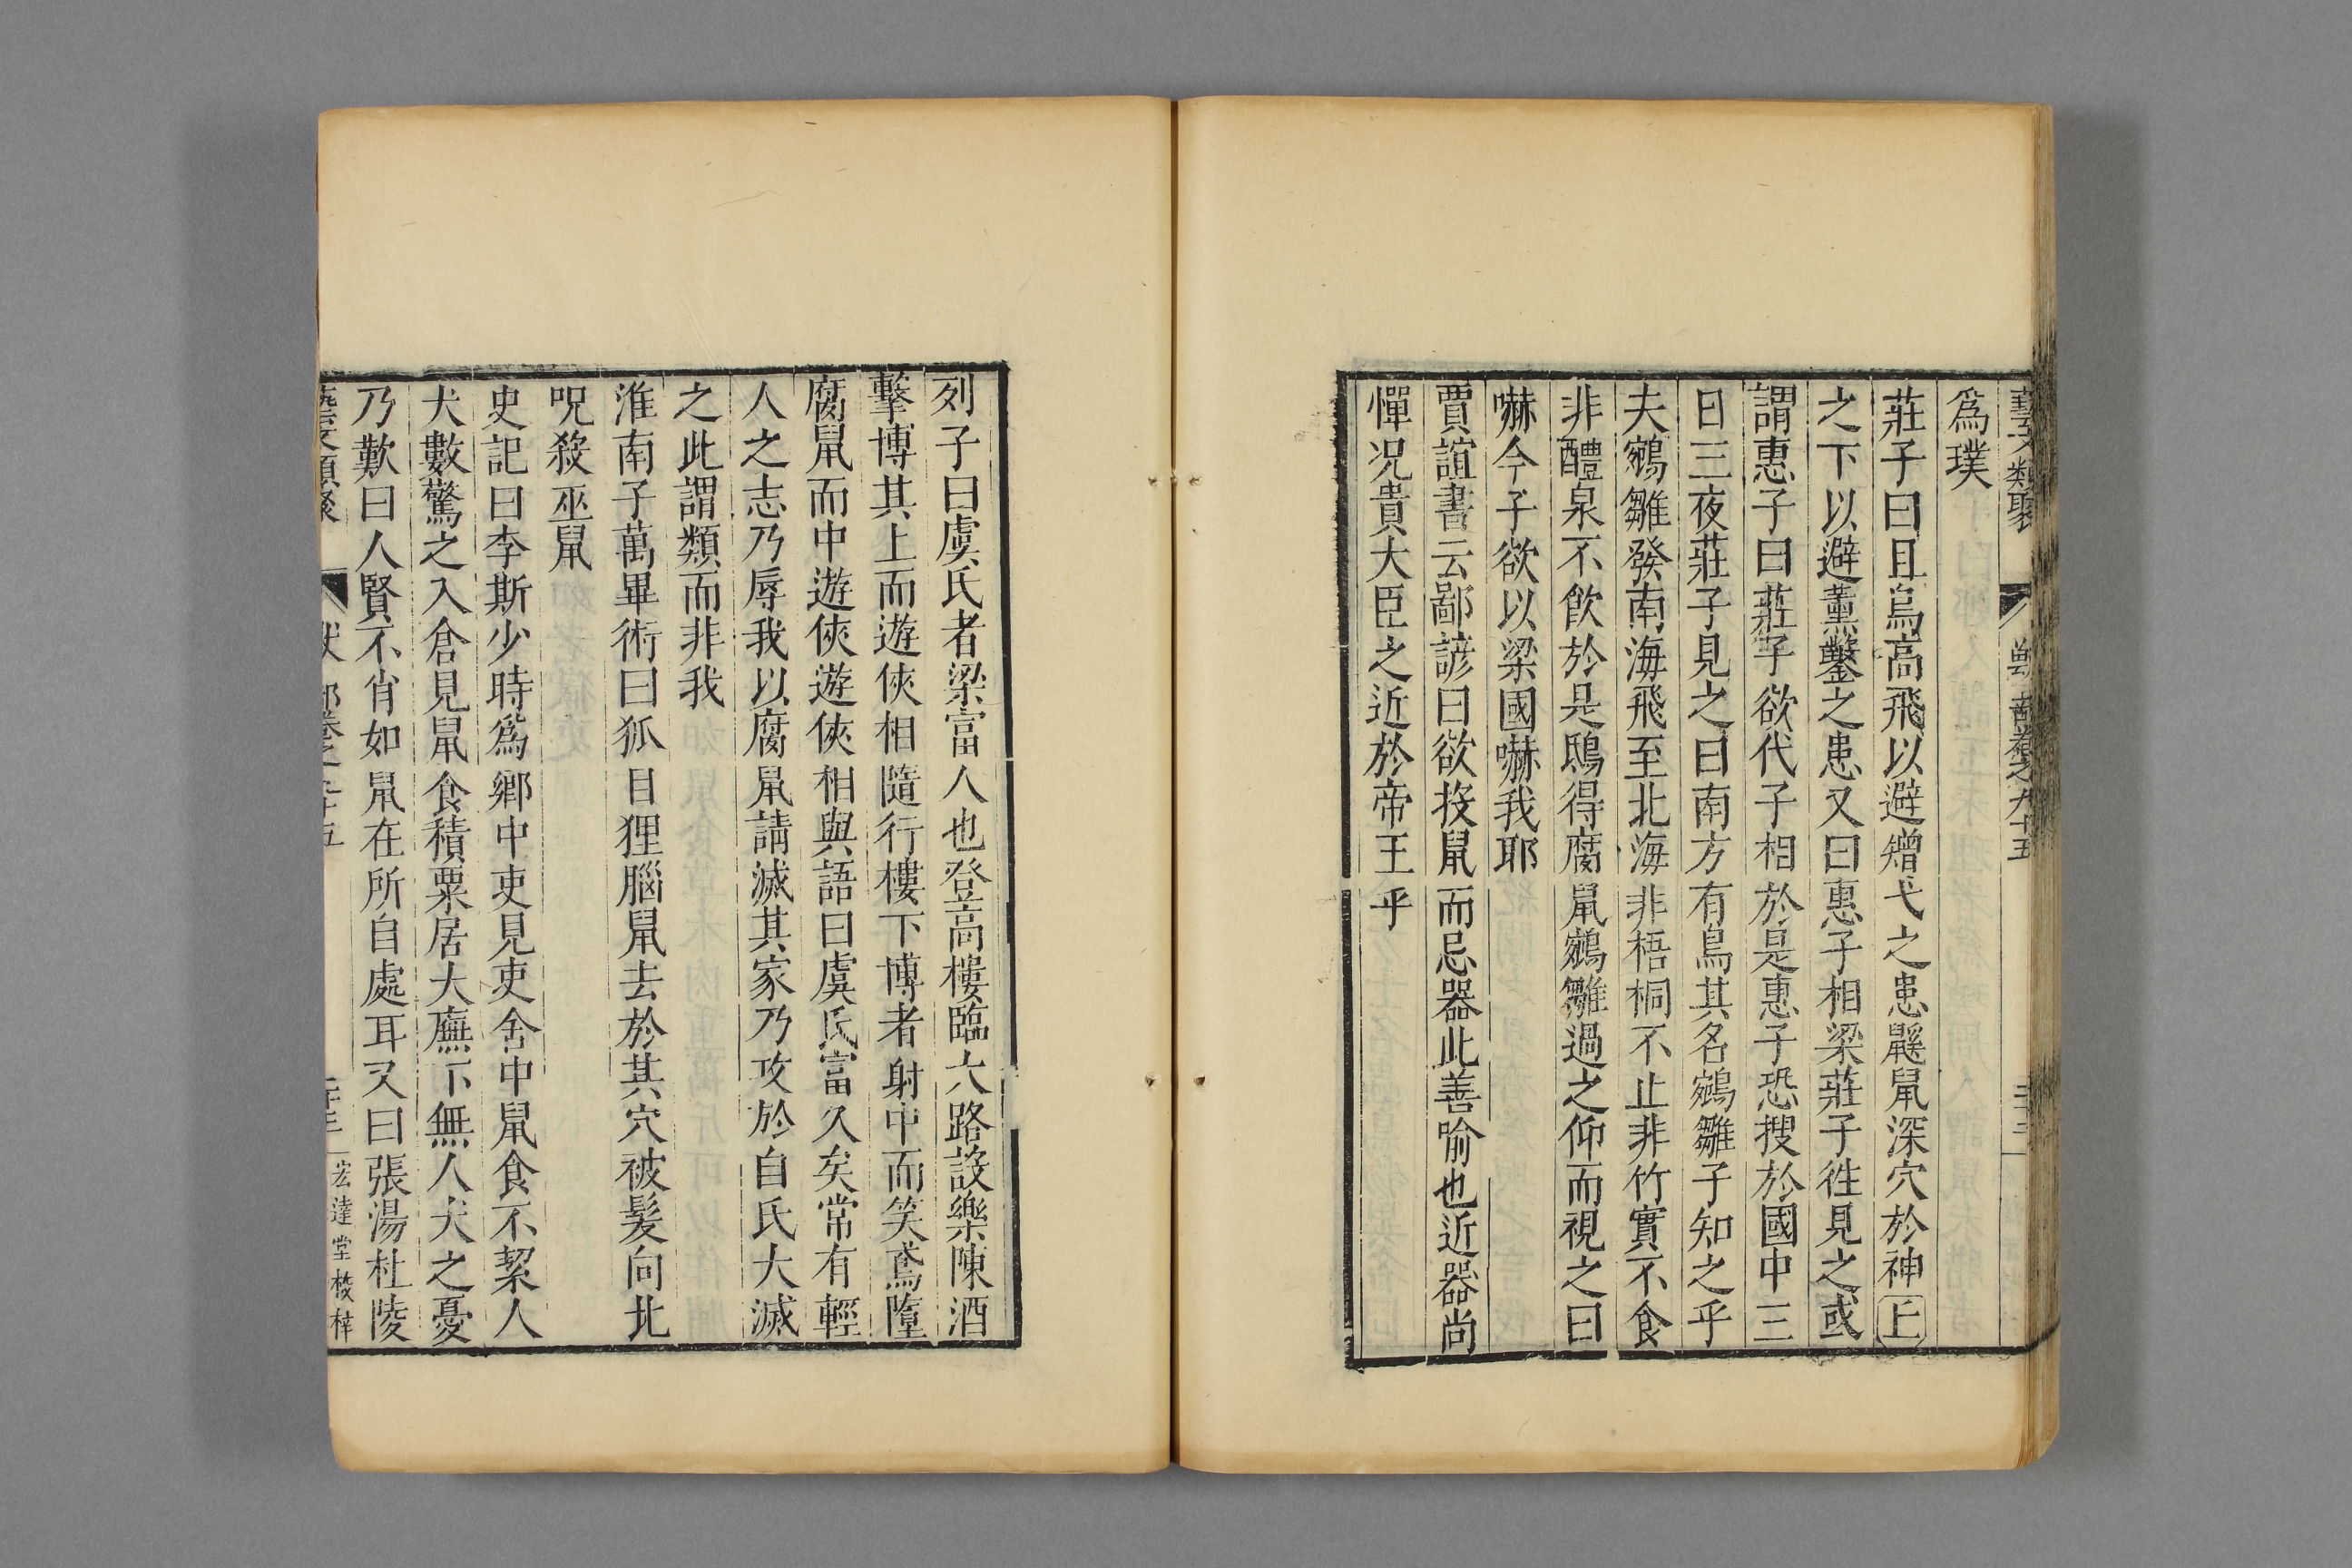 藝文類聚 獸部卷之九十五 二十三
爲璞
莊子曰且鳥高飛以避矰弋之患鼷鼠深穴於神丘
之下以避薰鑿之患又曰惠子相梁莊子徃見之或
謂惠子曰莊子欲代子相於是惠子恐搜於國中三
日三夜莊子見之曰南方有鳥其名鵷鶵子知之乎
夫鵷雛發南海飛至北海非梧桐不止非竹實不食
非醴泉不飲於是鴟得腐鼠鵷雛過之仰而視之曰
嚇今子欲以梁國嚇我耶
賈誼書云鄙諺曰欲投鼠而忌器此善喻也近器尚
憚况貴大臣之近於帝王乎
列子曰虞氏者梁富人也登高樓臨大路設樂陳酒
擊博其上而遊俠相隨行樓下博者射中而笑鳶墮
腐鼠而中遊俠遊俠相與語曰虞氏富久矣常有輕
人之志乃辱我以腐鼠請滅其家乃攻於自氏大滅
之此謂類而非我
淮南子萬畢術曰狐目狸腦鼠去於其穴被髮向北
呪殺巫鼠
史記曰李斯少時爲鄉中吏見吏舍中鼠食不絜人
犬數驚之入倉見鼠食積粟居大廡下無人犬之憂
乃歎曰人賢不肖如鼠在所自處耳又曰張湯杜陵
藝文類聚 獸部卷之九十五 二十三 宏達堂校梓